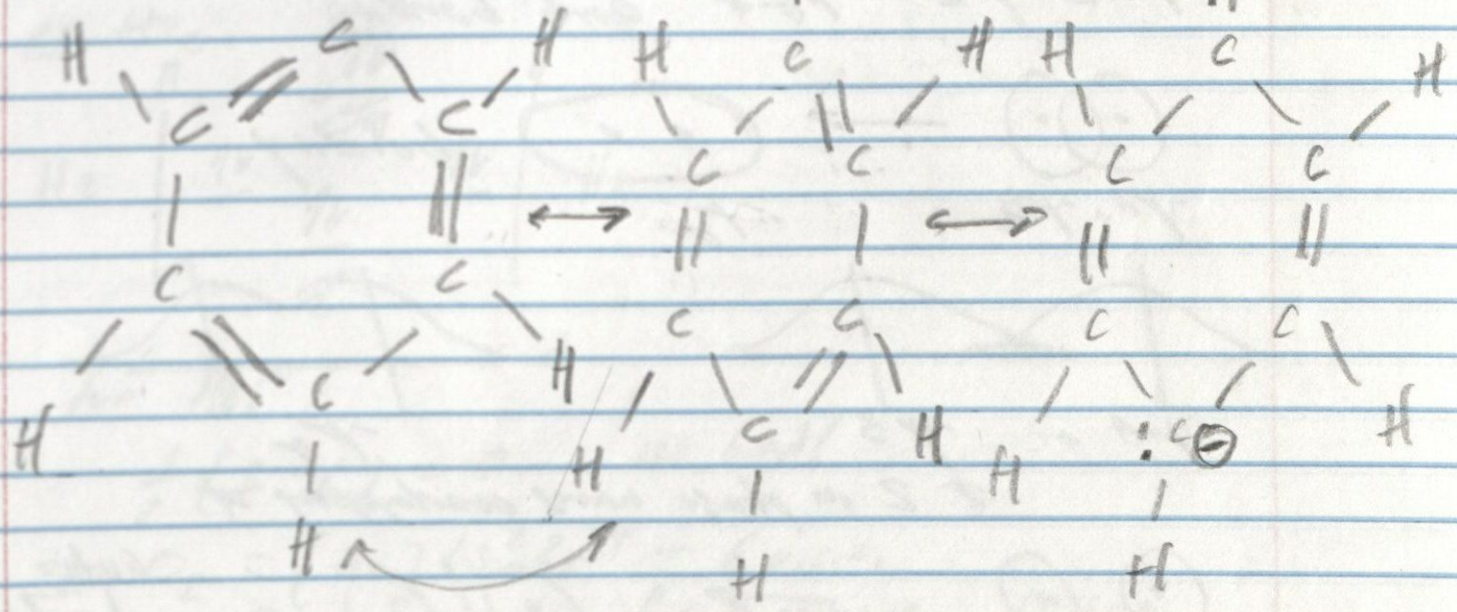 H C H H C H H C H
C C C C C C
C C C C C C
H C H H C H H :C⊖ H
H H H